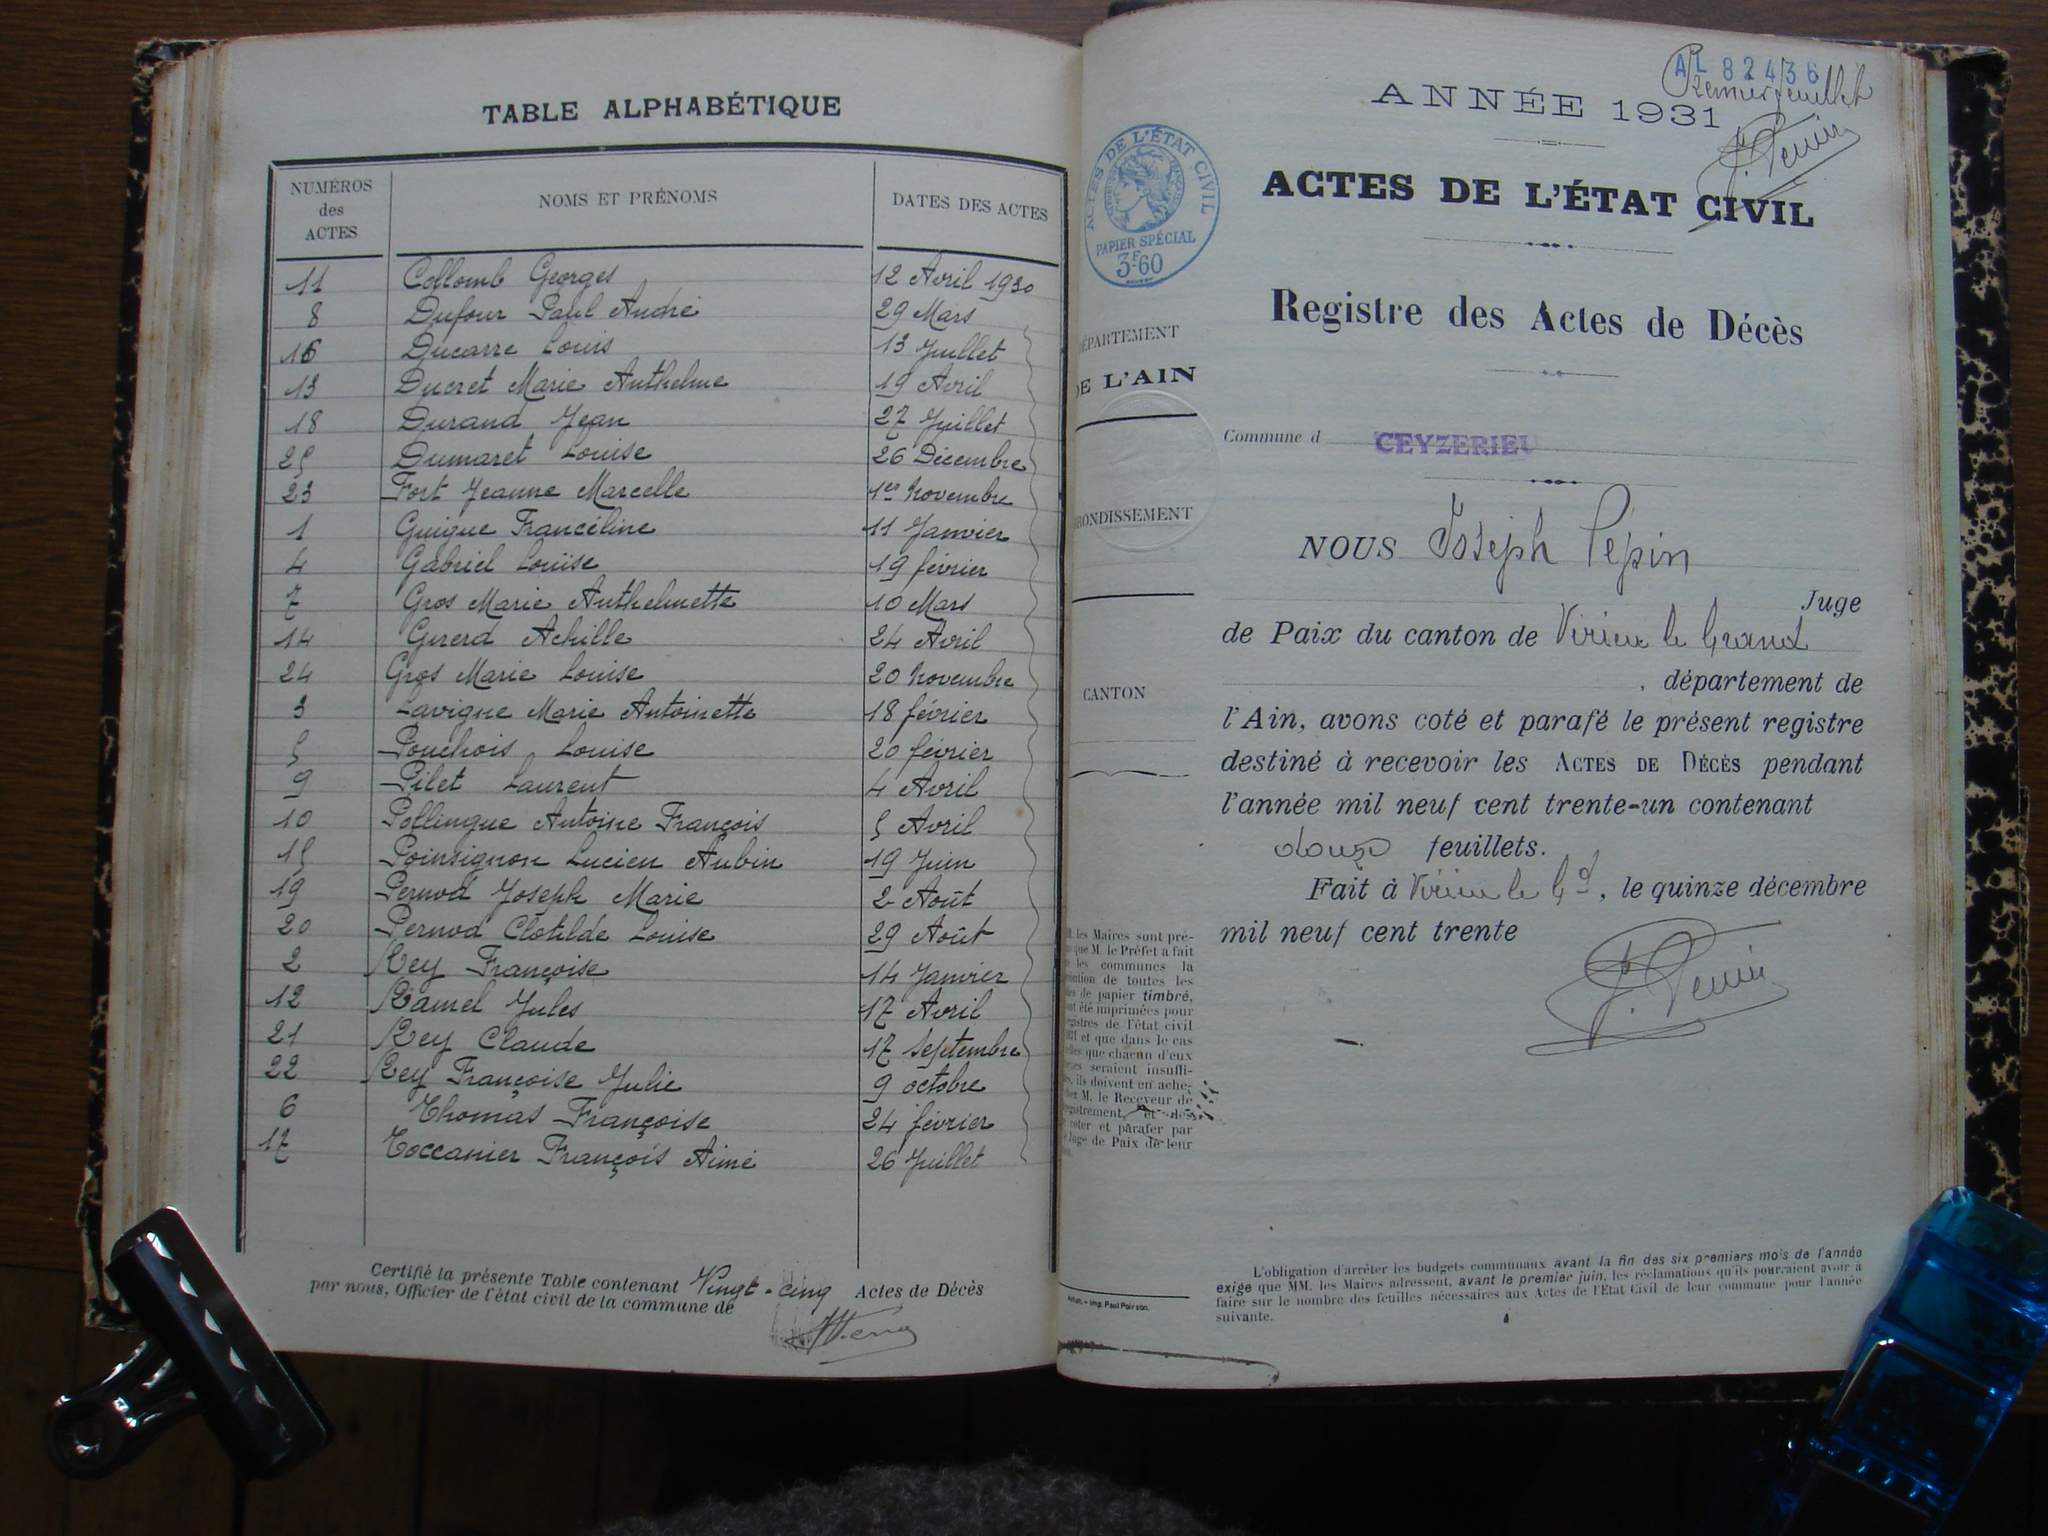 TABLE ALPHABÉTIQUE
NUMÉROS des ACTES NOMS ET PRÉNOMS DATES DES ACTES
11 Collomb Georges 12 Avril 1930
8 Dufour Paul André 29 Mars
16 Ducarre Louis 13 Juillet
13 Ducret Marie Anthelme 19 Avril
18 Durand Jean 27 Juillet
25 Dumaret Louise 26 Décembre
23 Fort Jeanne Marcelle 1er Novembre
1 Guigue Francéline 11 Janvier
4 Gabriel Louise 19 février
7 Gros Marie Anthelmette 10 Mars
14 Girerd Achille 24 Avril
24 Gros Marie Louise 20 Novembre
3 Lavigne Marie Antoinette 18 février
5 Pouchois Louise 20 février
9 Pilet Laurent 4 Avril
10 Pollingue Antoine François 5 Avril
15 Poinsignon Lucien Aubin 19 Juin
19 Pernod Joseph Marie 2 Août
20 Pernod Clotilde Louise 29 Août
2 Rey Françoise 14 Janvier
12 Ramel Jules 17 Avril
21 Rey Claude 17 Septembre
22 Rey Françoise Julie 9 octobre
6 Thomas Françoise 24 février
17 Toccanier François Aimé 26 Juillet
Certifié la présente Table contenant Vingt-cinq Actes de Décès
par nous, Officier de l'état civil de la commune de
AL 82436
Premier feuillet
ANNÉE 1931
ACTES DE L'ÉTAT CIVIL
PAPIER SPÉCIAL
3F60
ACTES DE L'ÉTAT CIVIL
Registre des Actes de Décès
DÉPARTEMENT
DE L'AIN
Commune d CEYZERIEU
RONDISSEMENT
NOUS Joseph Pépin
Juge
de Paix du canton de Virieu le Grand
, département de
CANTON
l'Ain, avons coté et parafé le présent registre
destiné à recevoir les ACTES DE DÉCÈS pendant
l'année mil neuf cent trente-un contenant
douze feuillets.
Fait à Virieu le Gd, le quinze décembre
mil neuf cent trente
les Maires sont pré-
que M. le Préfet a fait
les communes la
de toutes les
de papier timbré,
été imprimées pour
registres de l'état civil
et que dans le cas
que chacun d'eux
seraient insuffi-
ils doivent en ache-
M. le Receveur de
et des
coter et parafer par
Juge de Paix de leur
L'obligation d'arrêter les budgets communaux avant la fin des six premiers mois de l'année
exige que MM. les Maires adressent, avant le premier juin, les réclamations qu'ils pourraient avoir à
faire sur le nombre des feuilles nécessaires aux Actes de l'Etat Civil de leur commune pour l'année
suivante.
Imp. Paul Poirson.